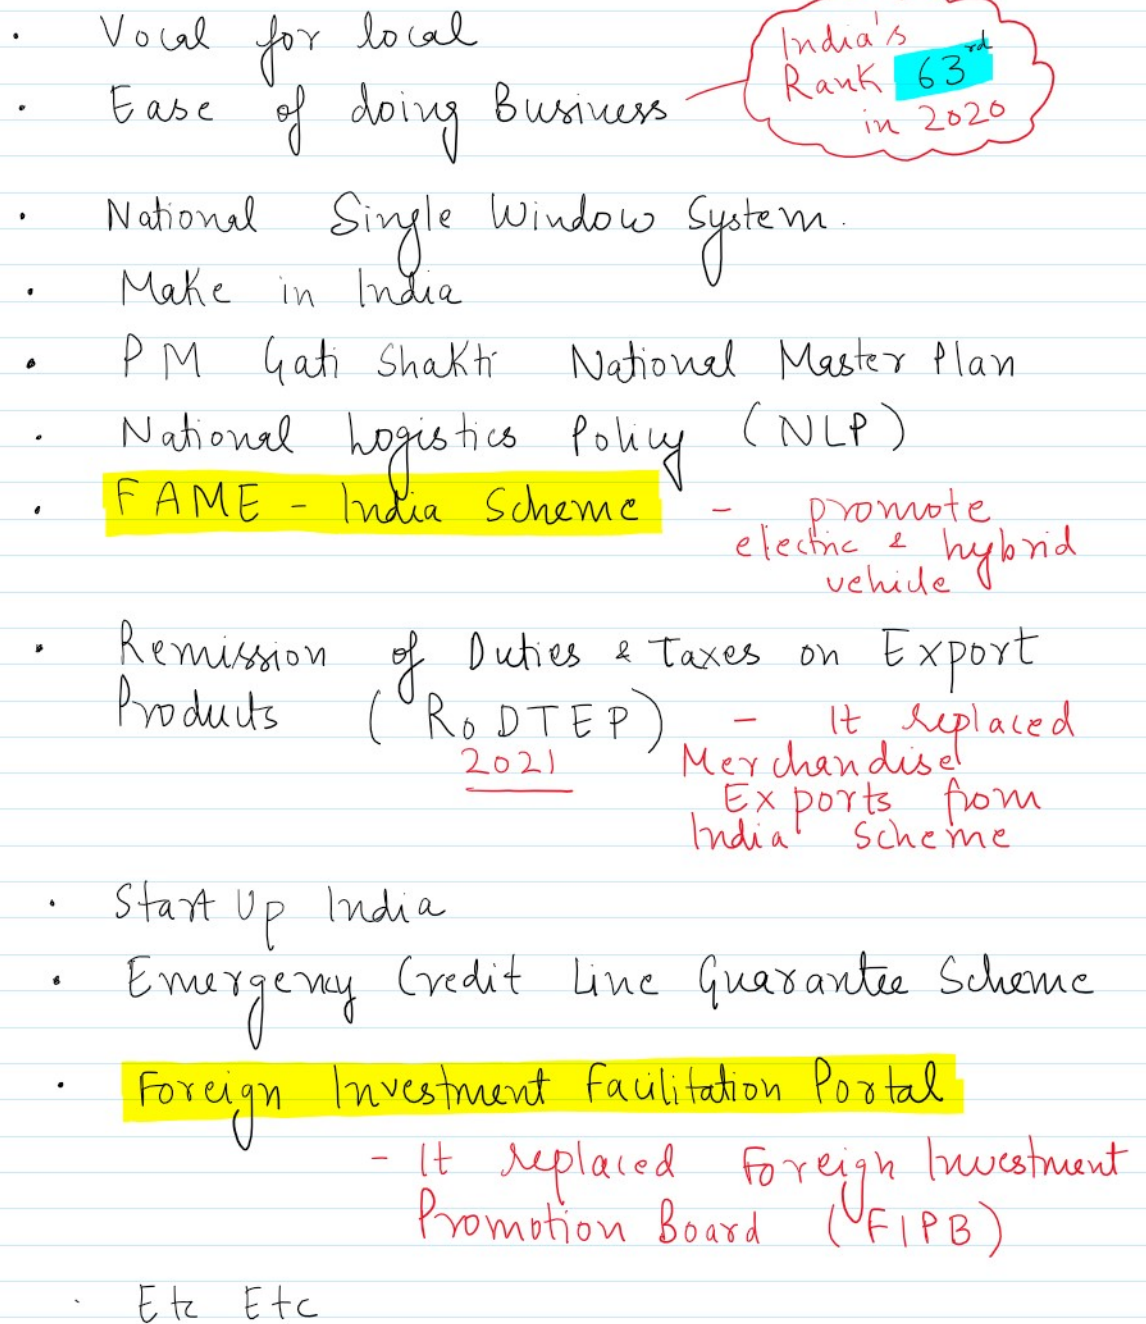 • Vocal for local
• Ease of doing Business
India's
Rank 63rd
in 2020
• National Single Window System.
• Make in India
• PM Gati Shakti National Master Plan
• National Logistics Policy (NLP)
• FAME - India Scheme - promote
electric & hybrid
vehicle
• Remission of Duties & Taxes on Export
Products (RoDTEP) - It replaced
2021 Merchandise
Exports from
India Scheme
• Start Up India
• Emergency Credit Line Guarantee Scheme
• Foreign Investment Facilitation Portal
- It replaced Foreign Investment
Promotion Board (FIPB)
• Etc Etc